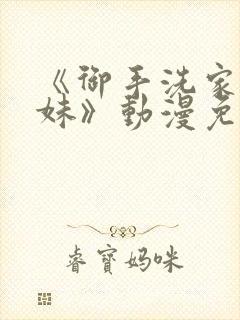 《御手洗家
妹》動漫免
睿寶媽咪